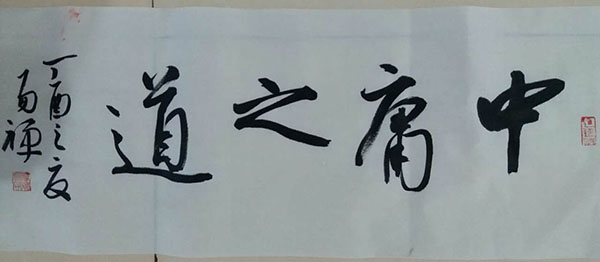 中庸之道
丁酉之夏
易禅